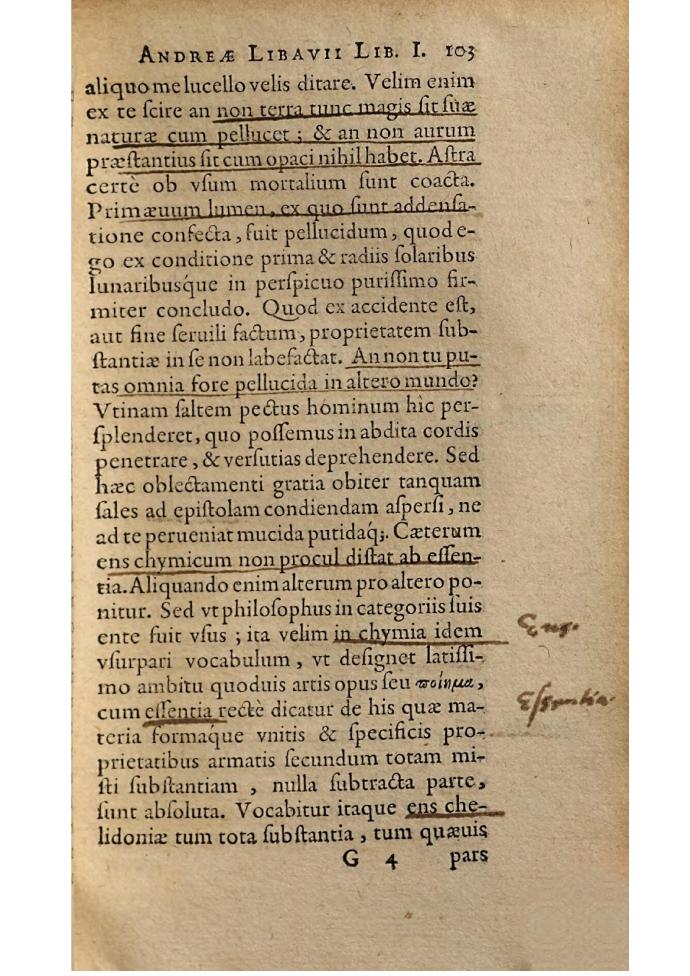 ANDREÆ LIBAVII LIB. I. 103
aliquo me lucello velis ditare. Velim enim
ex te ſcire an non terra tunc magis ſit ſuæ
naturæ cum pellucet ; & an non aurum
præſtantius ſit cum opaci nihil habet. Aſtra
certè ob vſum mortalium ſunt coacta.
Primæuum lumen, ex quo ſunt addenſa-
tione confecta, fuit pellucidum, quod e-
go ex conditione prima & radiis ſolaribus
lunaribusq́ue in perſpicuo puriſſimo fir-
miter concludo. Quod ex accidente eſt,
aut fine ſeruili factum, proprietatem ſub-
ſtantiæ in ſe non labefactat. An non tu pu-
tas omnia fore pellucida in altero mundo?
Vtinam ſaltem pectus hominum hîc per-
ſplenderet, quo poſſemus in abdita cordis
penetrare, & verſutias deprehendere. Sed
hæc oblectamenti gratia obiter tanquam
ſales ad epiſtolam condiendam aſperſi, ne
ad te perueniat mucida putidaq́;. Cæterum
ens chymicum non procul diſtat ab eſſen-
tia. Aliquando enim alterum pro altero po-
nitur. Sed vt philoſophus in categoriis ſuis
ente fuit vſus ; ita velim in chymia idem
Ens.
vſurpari vocabulum, vt deſignet latiſſi-
mo ambitu quoduis artis opus ſeu ποίημα,
cum eſſentia rectè dicatur de his quæ ma-
Eſſentia
teria formaq́ue vnitis & ſpecificis pro-
prietatibus armatis ſecundum totam mi-
ſti ſubſtantiam, nulla ſubtracta parte,
ſunt abſoluta. Vocabitur itaque ens che-
lidoniæ tum tota ſubſtantia, tum quæuis
G 4 pars